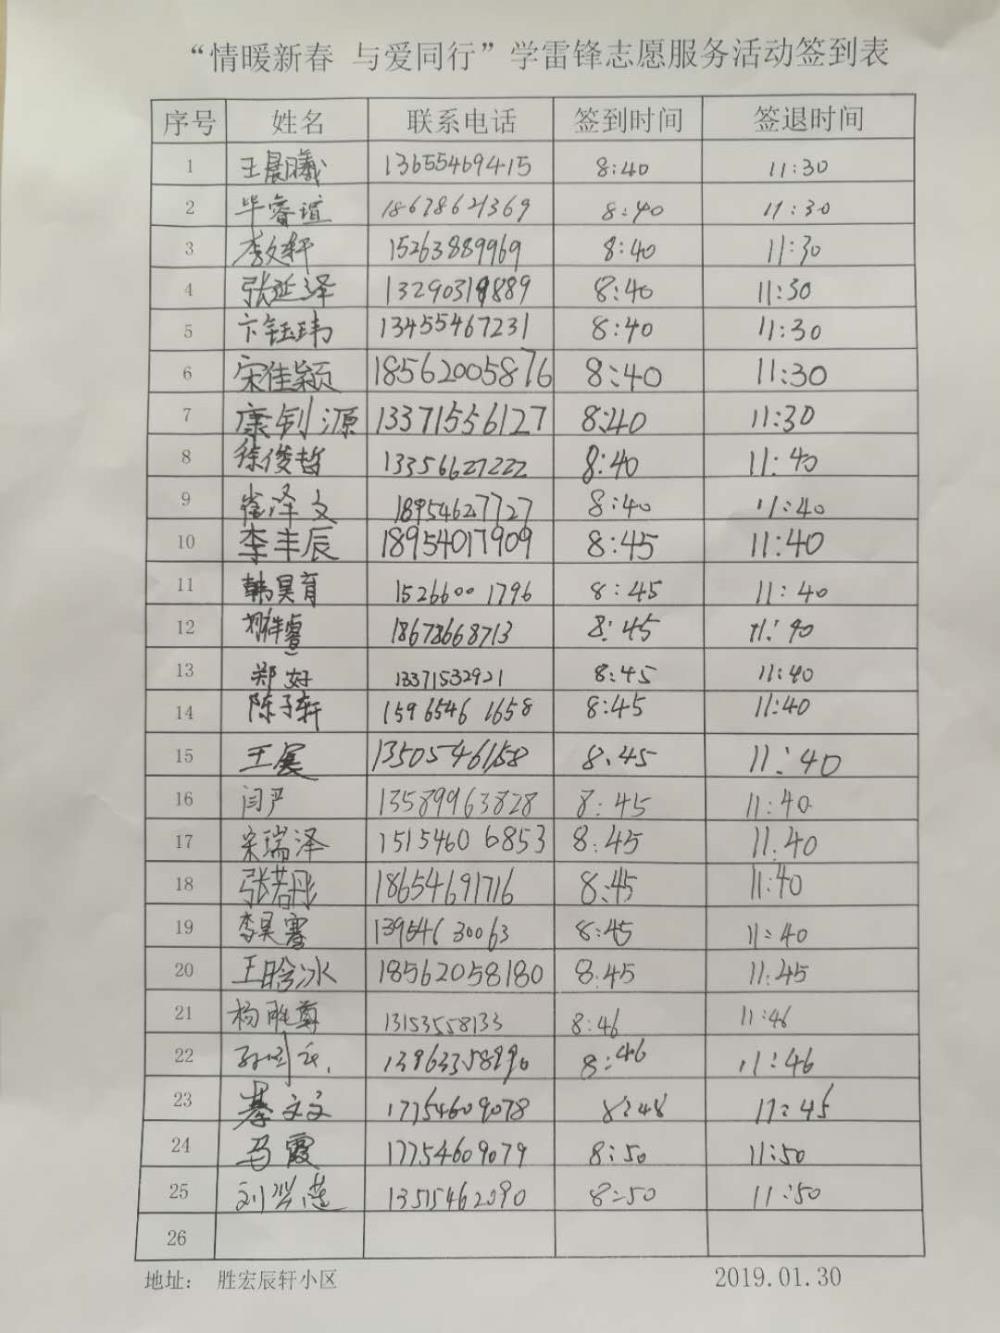 “情暖新春 与爱同行”学雷锋志愿服务活动签到表
序号 姓名 联系电话 签到时间 签退时间
1 王晨曦 13655469415 8:40 11:30
2 毕睿谊 18678621369 8:40 11:30
3 李文轩 15263889969 8:40 11:30
4 张延泽 13290319889 8:40 11:30
5 卞钰玮 13455467231 8:40 11:30
6 宋佳颖 18562005876 8:40 11:30
7 康钊源 13371556127 8:40 11:30
8 徐俊哲 13356627222 8:40 11:40
9 崔泽文 18954627727 8:40 11:40
10 李丰辰 18954017909 8:45 11:40
11 韩昊育 15266001796 8:45 11:40
12 18678668713 8:45 11:40
13 郑好 13371532921 8:45 11:40
14 陈子轩 159 6546 1658 8:45 11:40
15 王展 13505461158 8:45 11:40
16 闫严 13589963828 8:45 11:40
17 宋瑞泽 1515460 6853 8:45 11:40
18 张若彤 18654691716 8:45 11:40
19 李昊骞 139546 30063 8:45 11:40
20 王晗冰 18562058180 8:45 11:45
21 杨胜尊 13153558133 8:46 11:46
22 8:46 11:46
23 綦文文 17754609078 8:48 11:45
24 马霞 17754609079 8:50 11:50
25 13515462090 8:50 11:50
26
地址： 胜宏辰轩小区 2019.01.30